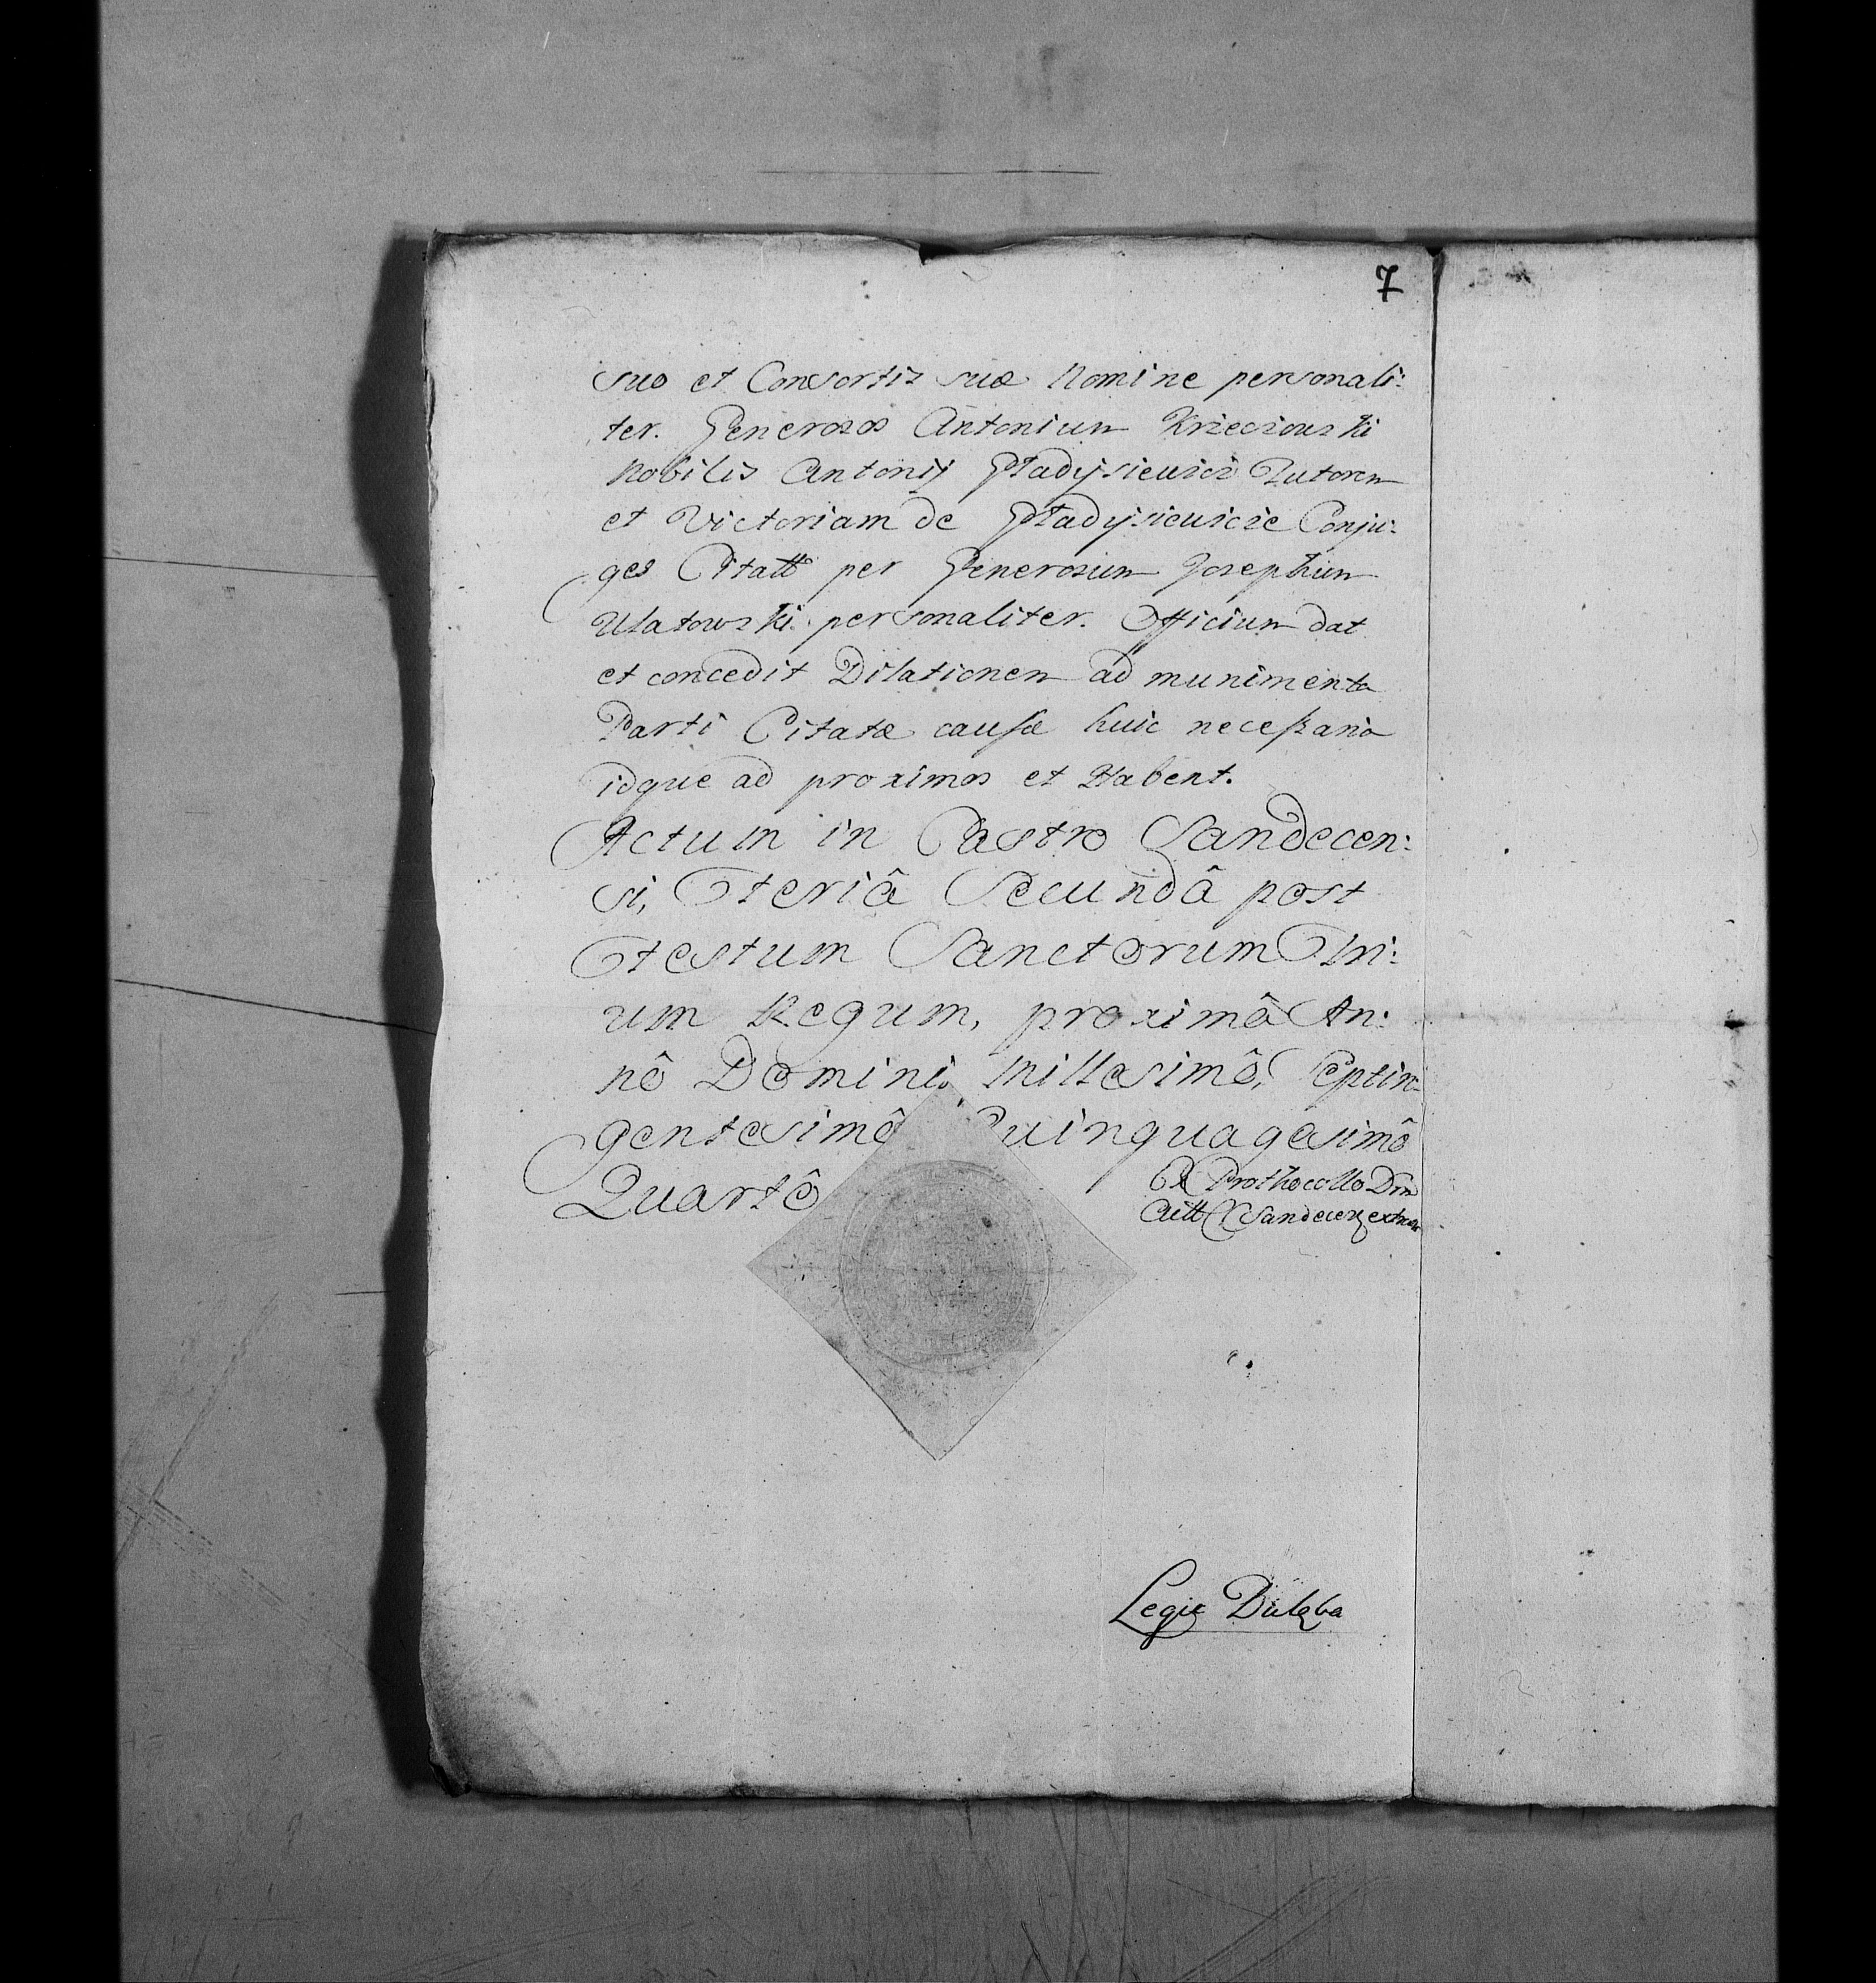 7
suo et Consortis suæ Nomine personali:
ter. Generosos Antonium Krzeczowski
Nobilis Antonij Gładysiewicz Tutorem
et Victoriam de Gładysiewicze Conju:
ges Citatt per Generosum Josephum
Ulatowski personaliter. Officium dat
et concedit Dilationem ad munimenta
Parti Citatæ causæ huic necessaria
idque ad proximos et Habent.
Actum in Castro Sandecen:
si, Feriâ Secundâ post
Festum Sanctorum Tri:
um Regum, proximâ An:
nô Domini Millesimô, Septin:
gentesimô Quinquagesimô
Quartô
Ex Prothocollo
Sandecen extra
Legit